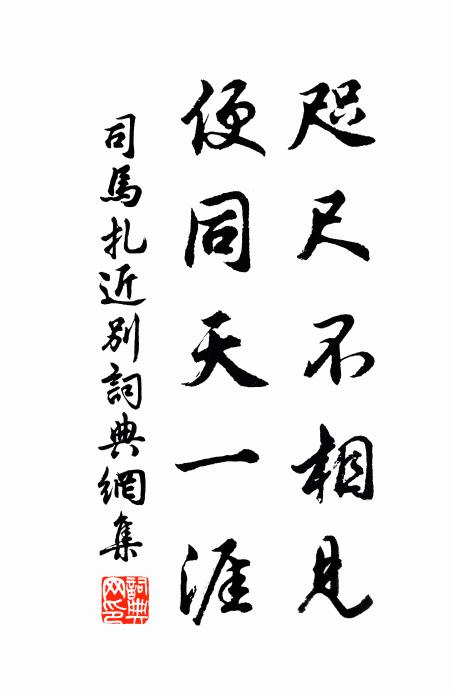 咫尺不相見
便同天一涯
司馬扎近別詞典網集
詞典網印